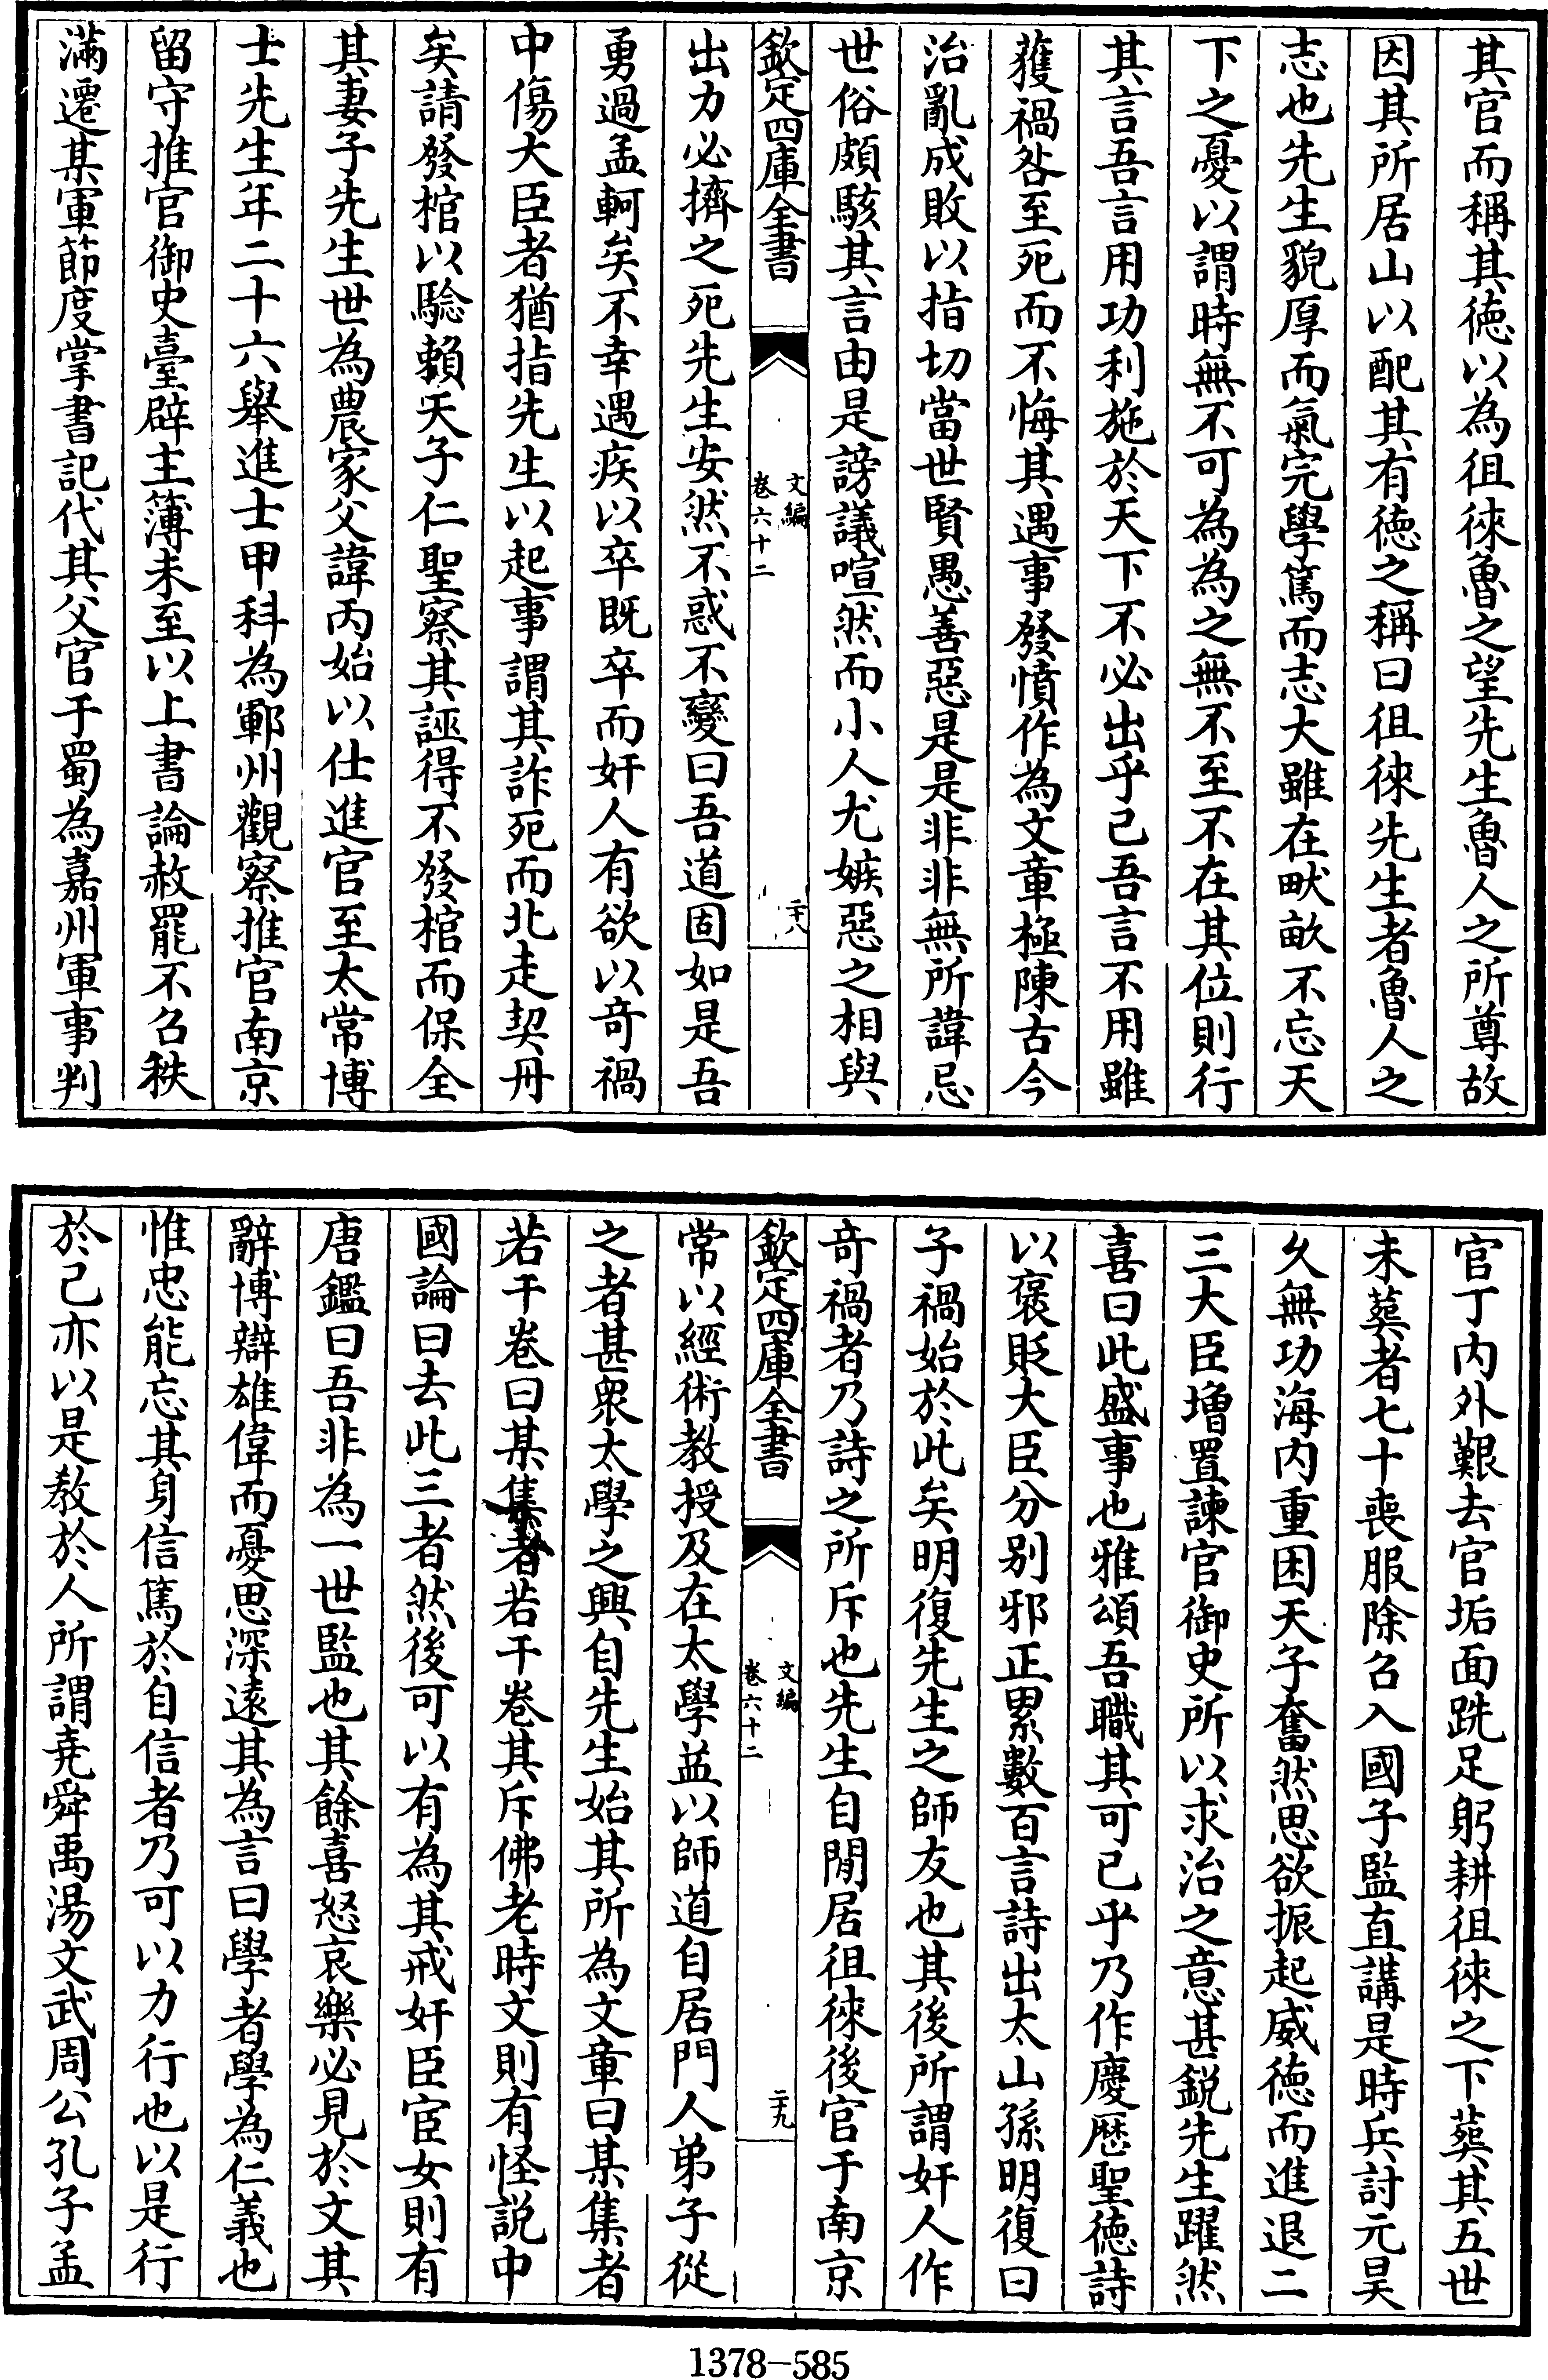 其官而稱其徳以為徂徠魯之望先生魯人之所尊故
因其所居山以配其有徳之稱曰徂徠先生者魯人之
志也先生貌厚而氣完學篤而志大雖在畎畝不忘天
下之憂以謂時無不可為為之無不至不在其位則行
其言吾言用功利施於天下不必出乎己吾言不用雖
獲禍咎至死而不悔其遇事發憤作為文章極陳古今
治亂成敗以指切當世賢愚善惡是是非非無所諱忌
世俗頗駭其言由是謗議喧然而小人尤嫉惡之相與
欽定四庫全書
文編
卷六十二
二十八
出力必擠之死先生安然不惑不變曰吾道固如是吾
勇過孟軻矣不幸遇疾以卒既卒而奸人有欲以奇禍
中傷大臣者猶指先生以起事謂其詐死而北走契丹
矣請發棺以驗賴天子仁聖察其誣得不發棺而保全
其妻子先生世為農家父諱丙始以仕進官至太常博
士先生年二十六舉進士甲科為鄆州觀察推官南京
留守推官御史臺辟主簿未至以上書論赦罷不召秩
滿遷某軍節度掌書記代其父官于蜀為嘉州軍事判
官丁内外艱去官垢面跣足躬耕徂徠之下葬其五世
未葬者七十喪服除召入國子監直講是時兵討元昊
久無功海内重困天子奮然思欲振起威徳而進退二
三大臣増置諫官御史所以求治之意甚鋭先生躍然
喜曰此盛事也雅頌吾職其可已乎乃作慶厯聖徳詩
以褒貶大臣分别邪正累數百言詩出太山孫明復曰
子禍始於此矣明復先生之師友也其後所謂奸人作
奇禍者乃詩之所斥也先生自閒居徂徠後官于南京
欽定四庫全書
文編
卷六十二
二十九
常以經術教授及在太學益以師道自居門人弟子從
之者甚衆太學之興自先生始其所為文章曰某集者
若干卷曰某集者若干卷其斥佛老時文則有怪説中
國論曰去此三者然後可以有為其戒奸臣宦女則有
唐鑑曰吾非為一世監也其餘喜怒哀樂必見於文其
辭博辯雄偉而憂思深遠其為言曰學者學為仁義也
惟忠能忘其身信篤於自信者乃可以力行也以是行
於己亦以是教於人所謂堯舜禹湯文武周公孔子孟
1378-585